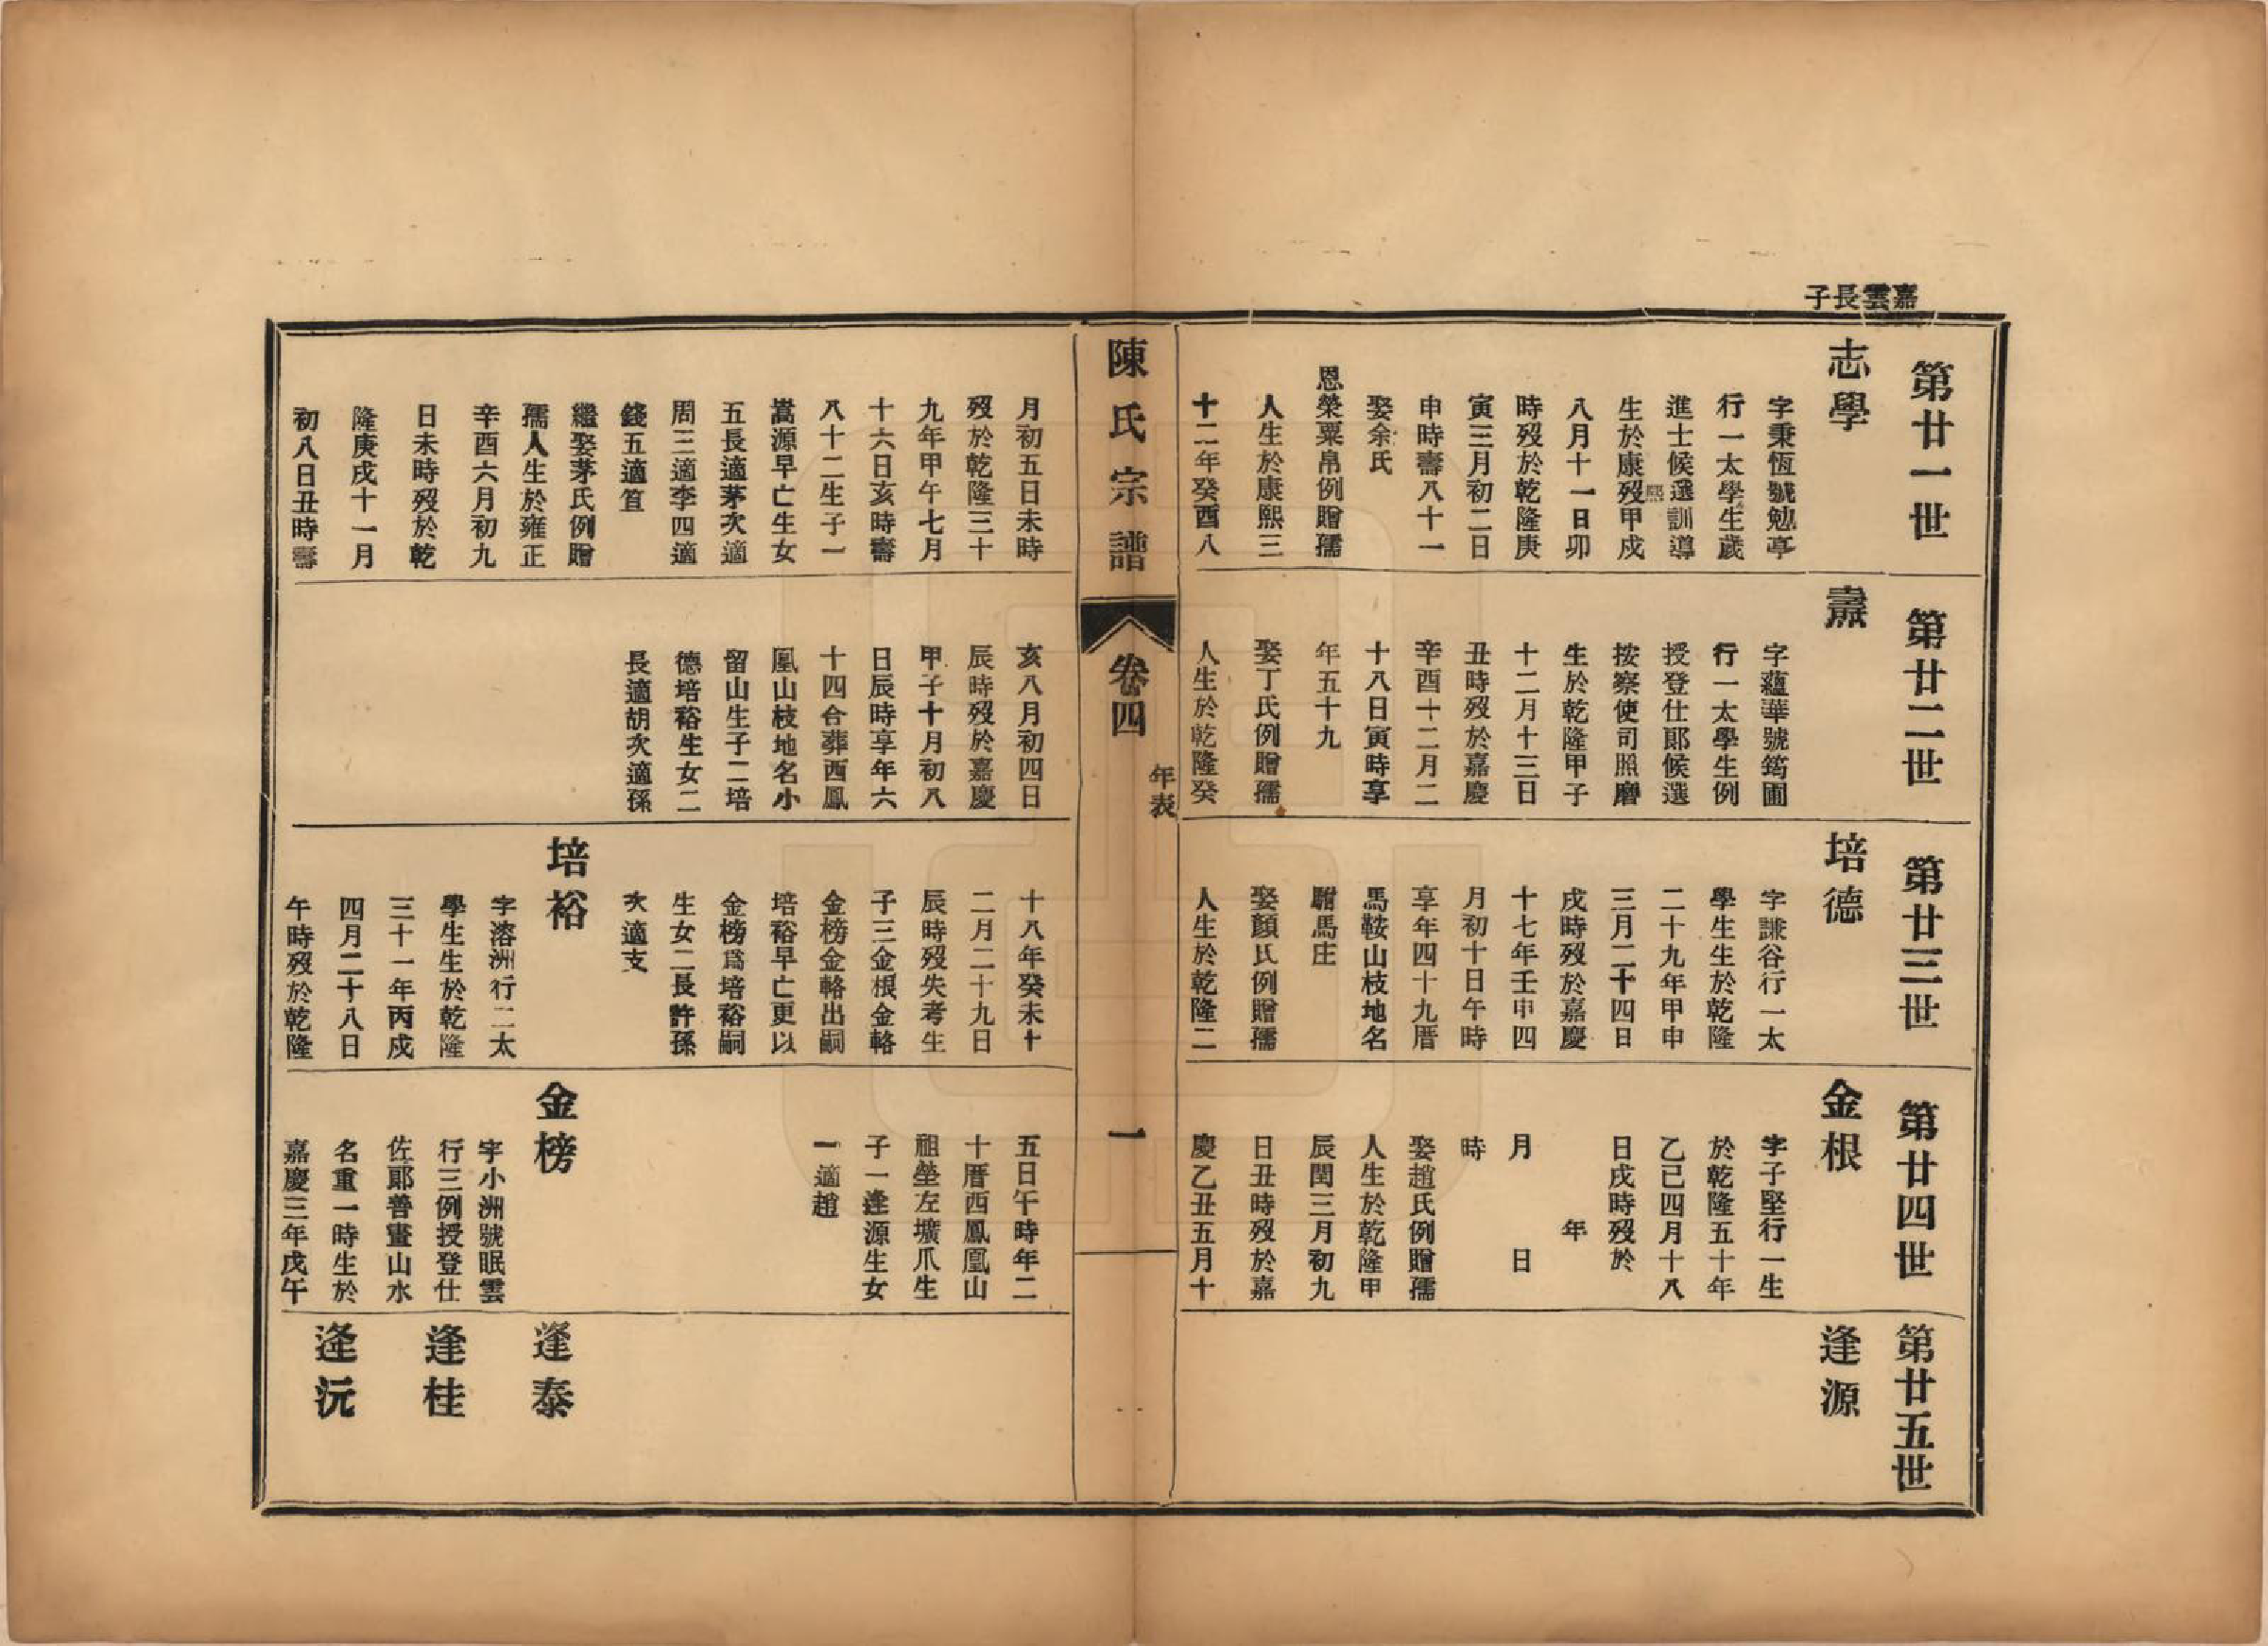 嘉雲長子
第廿一世
志學
字秉恆號勉亭
行一太學生歲
進士候選訓導
生於康熙甲戌
八月十一日卯
時歿於乾隆庚
寅三月初二日
申時壽八十一
娶余氏
恩榮粟帛例贈孺
人生於康熙三
十二年癸酉八
第廿二世
字蘊華號筠圃
行一太學生例
授登仕郞候選
按察使司照磨
生於乾隆甲子
十二月十三日
丑時歿於嘉慶
辛酉十二月二
十八日寅時享
年五十九
娶丁氏例贈孺
人生於乾隆癸
第廿三世
培德
字謙谷行一太
學生生於乾隆
二十九年甲申
三月二十四日
戌時歿於嘉慶
十七年壬申四
月初十日午時
享年四十九厝
馬鞍山枝地名
駙馬庄
娶顏氏例贈孺
人生於乾隆二
第廿四世
金根
字子堅行一生
於乾隆五十年
乙巳四月十八
日戌時歿於
年
月 日
時
娶趙氏例贈孺
人生於乾隆甲
辰閏三月初九
日丑時歿於嘉
慶乙丑五月十
第廿五世
逢源
陳氏宗譜
卷四
年表
一
月初五日未時
歿於乾隆三十
九年甲午七月
十六日亥時壽
八十二生子一
嵩源早亡生女
五長適茅次適
周三適李四適
錢五適笪
繼娶茅氏例贈
孺人生於雍正
辛酉六月初九
日未時歿於乾
隆庚戌十一月
初八日丑時壽
亥八月初四日
辰時歿於嘉慶
甲子十月初八
日辰時享年六
十四合葬西鳳
凰山枝地名小
留山生子二培
德培裕生女二
長適胡次適孫
十八年癸未十
二月二十九日
辰時歿失考生
子三金根金輅
金榜金輅出嗣
培裕早亡更以
金榜爲培裕嗣
生女二長許孫
次適支
培裕
字溶洲行二太
學生生於乾隆
三十一年丙戌
四月二十八日
午時歿於乾隆
五日午時年二
十厝西鳳凰山
祖塋左壙爪生
子一逢源生女
一適趙
金榜
字小洲號眠雲
行三例授登仕
佐郞善畫山水
名重一時生於
嘉慶三年戊午
逢泰
逢桂
逢沅